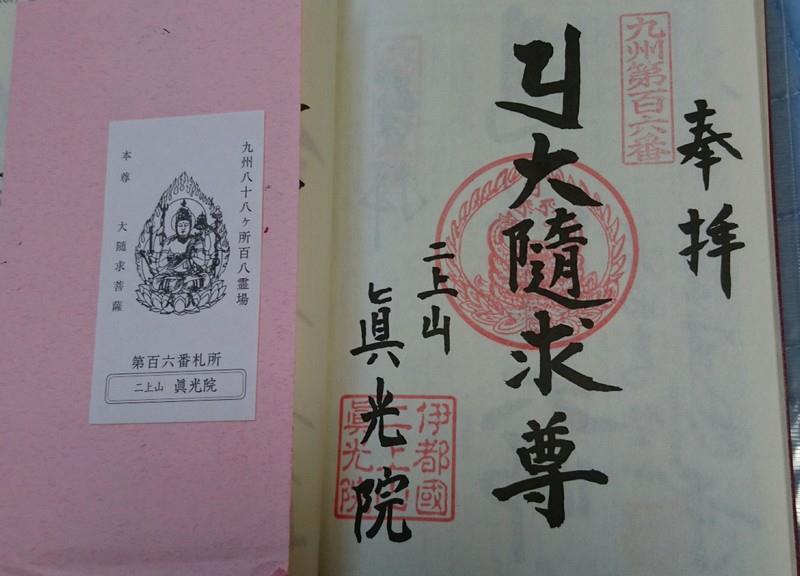 九州第百六番
奉拝
大隨求尊
二上山
眞光院
伊都國
二上山
眞光院
九州八十八ヶ所百八霊場
本尊　大随求菩薩
第百六番札所
二上山　眞光院